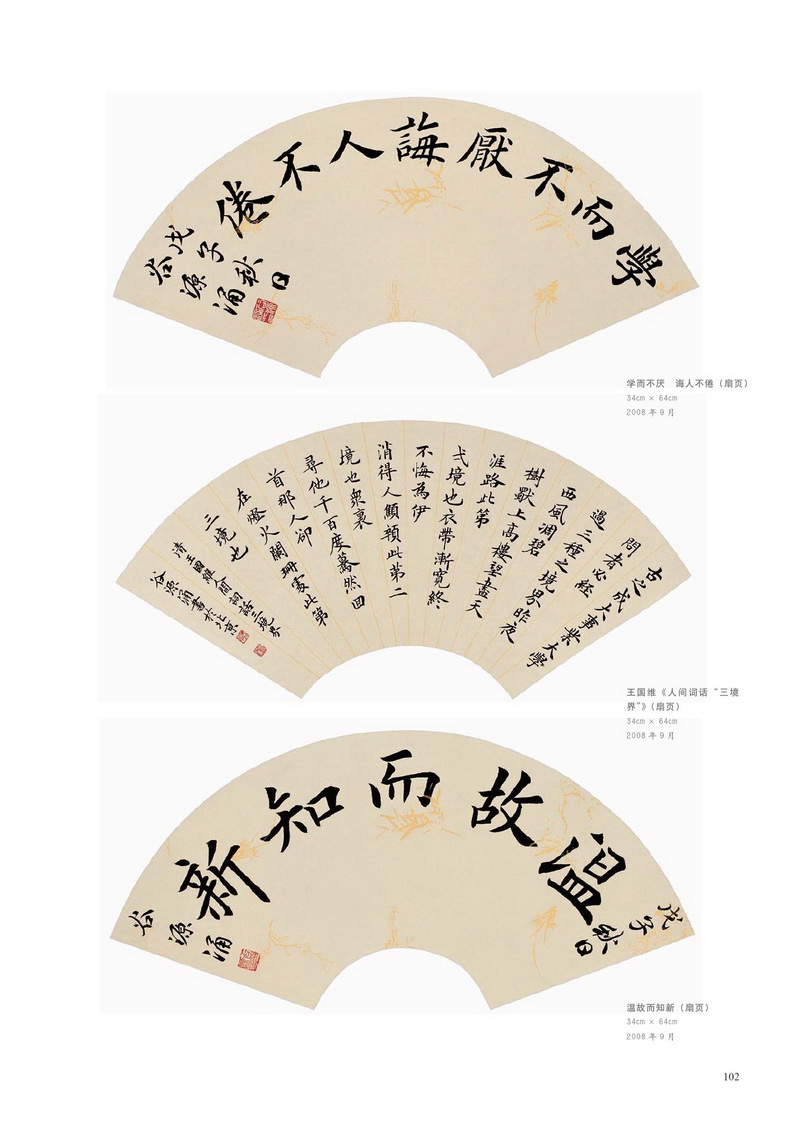 學而不厭誨人不倦
戊子秋日
谷源涌
学而不厌 诲人不倦（扇页）
34cm × 64cm
2008 年 9 月
古之成大事業大學
問者必經
過三種之境界昨夜
西風凋碧
樹獨上高樓望盡天
涯路此第
弌境也衣帶漸寬終
不悔為伊
消得人顦顇此第二
境也衆裏
尋他千百度驀然回
首那人卻
在燈火闌珊處此第
三境也
清王國維人間詞話三境界
谷源涌書於北京
王国维《人间词话“三境
界”》（扇页）
34cm × 64cm
2008 年 9 月
戊子
秋日
温故而知新
谷源涌
温故而知新（扇页）
34cm × 64cm
2008 年 9 月
102